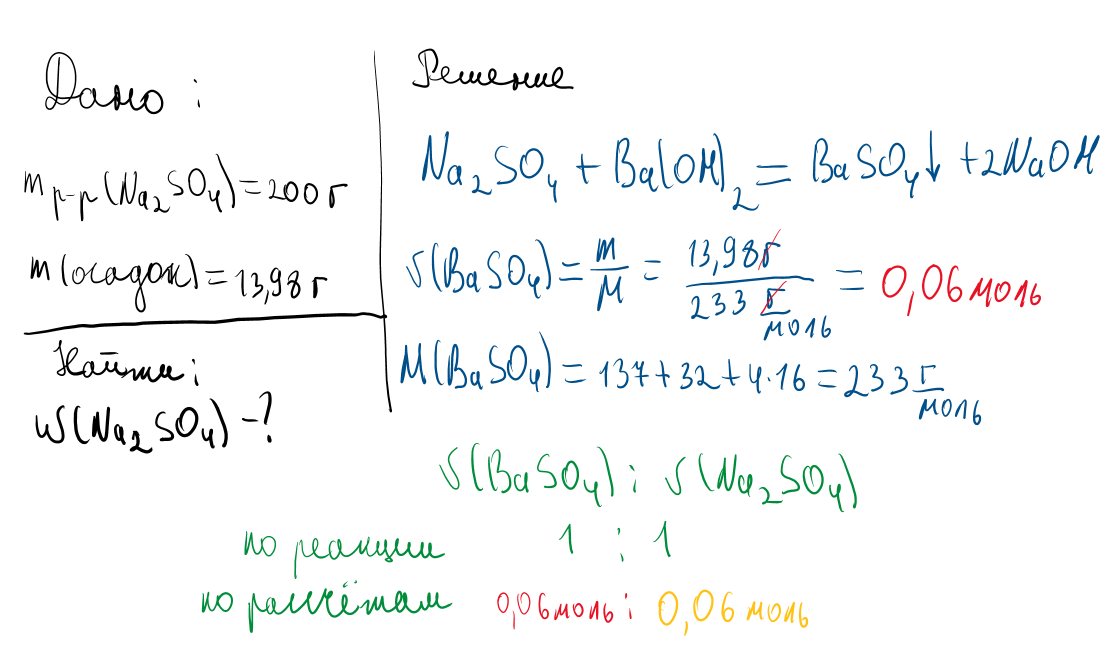 Дано:
m р-р (Na₂SO₄) = 200 г
m (осадок) = 13,98 г
Найти:
ω(Na₂SO₄) - ?
Решение
Na₂SO₄ + Ba(OH)₂ = BaSO₄↓ + 2NaOH
ν(BaSO₄) = m/M = 13,98 г / 233 г/моль = 0,06 моль
M(BaSO₄) = 137 + 32 + 4·16 = 233 г/моль
ν(BaSO₄) : ν(Na₂SO₄)
по реакции 1 : 1
по расчётам 0,06 моль : 0,06 моль